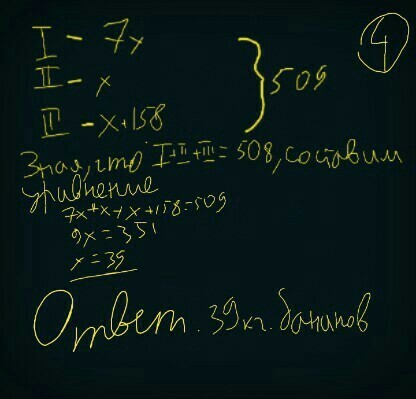 4
I - 7x
II - x
509
III - x+158
Зная, что I+II+III=508, составим
уравнение
7x+x+x+158=509
9x=351
x=39
Ответ. 39 кг. бананов